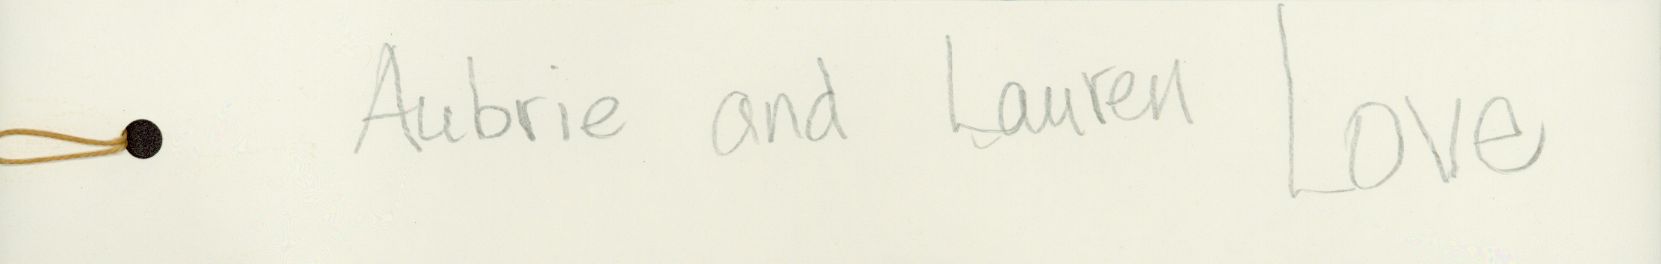 Aubrie and Lauren Love